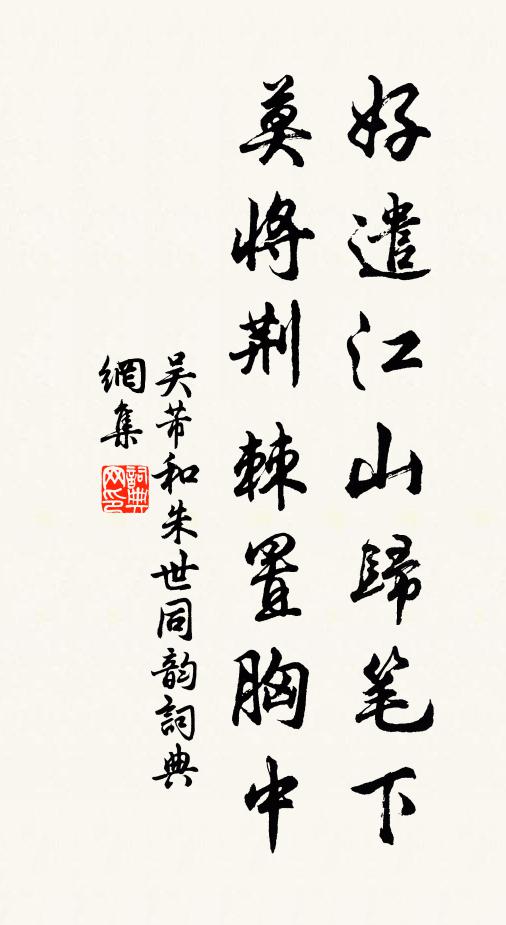 好遣江山歸笔下
莫將荆棘置胸中
吴芾和朱世同韵詞典
網集
詞典
网印